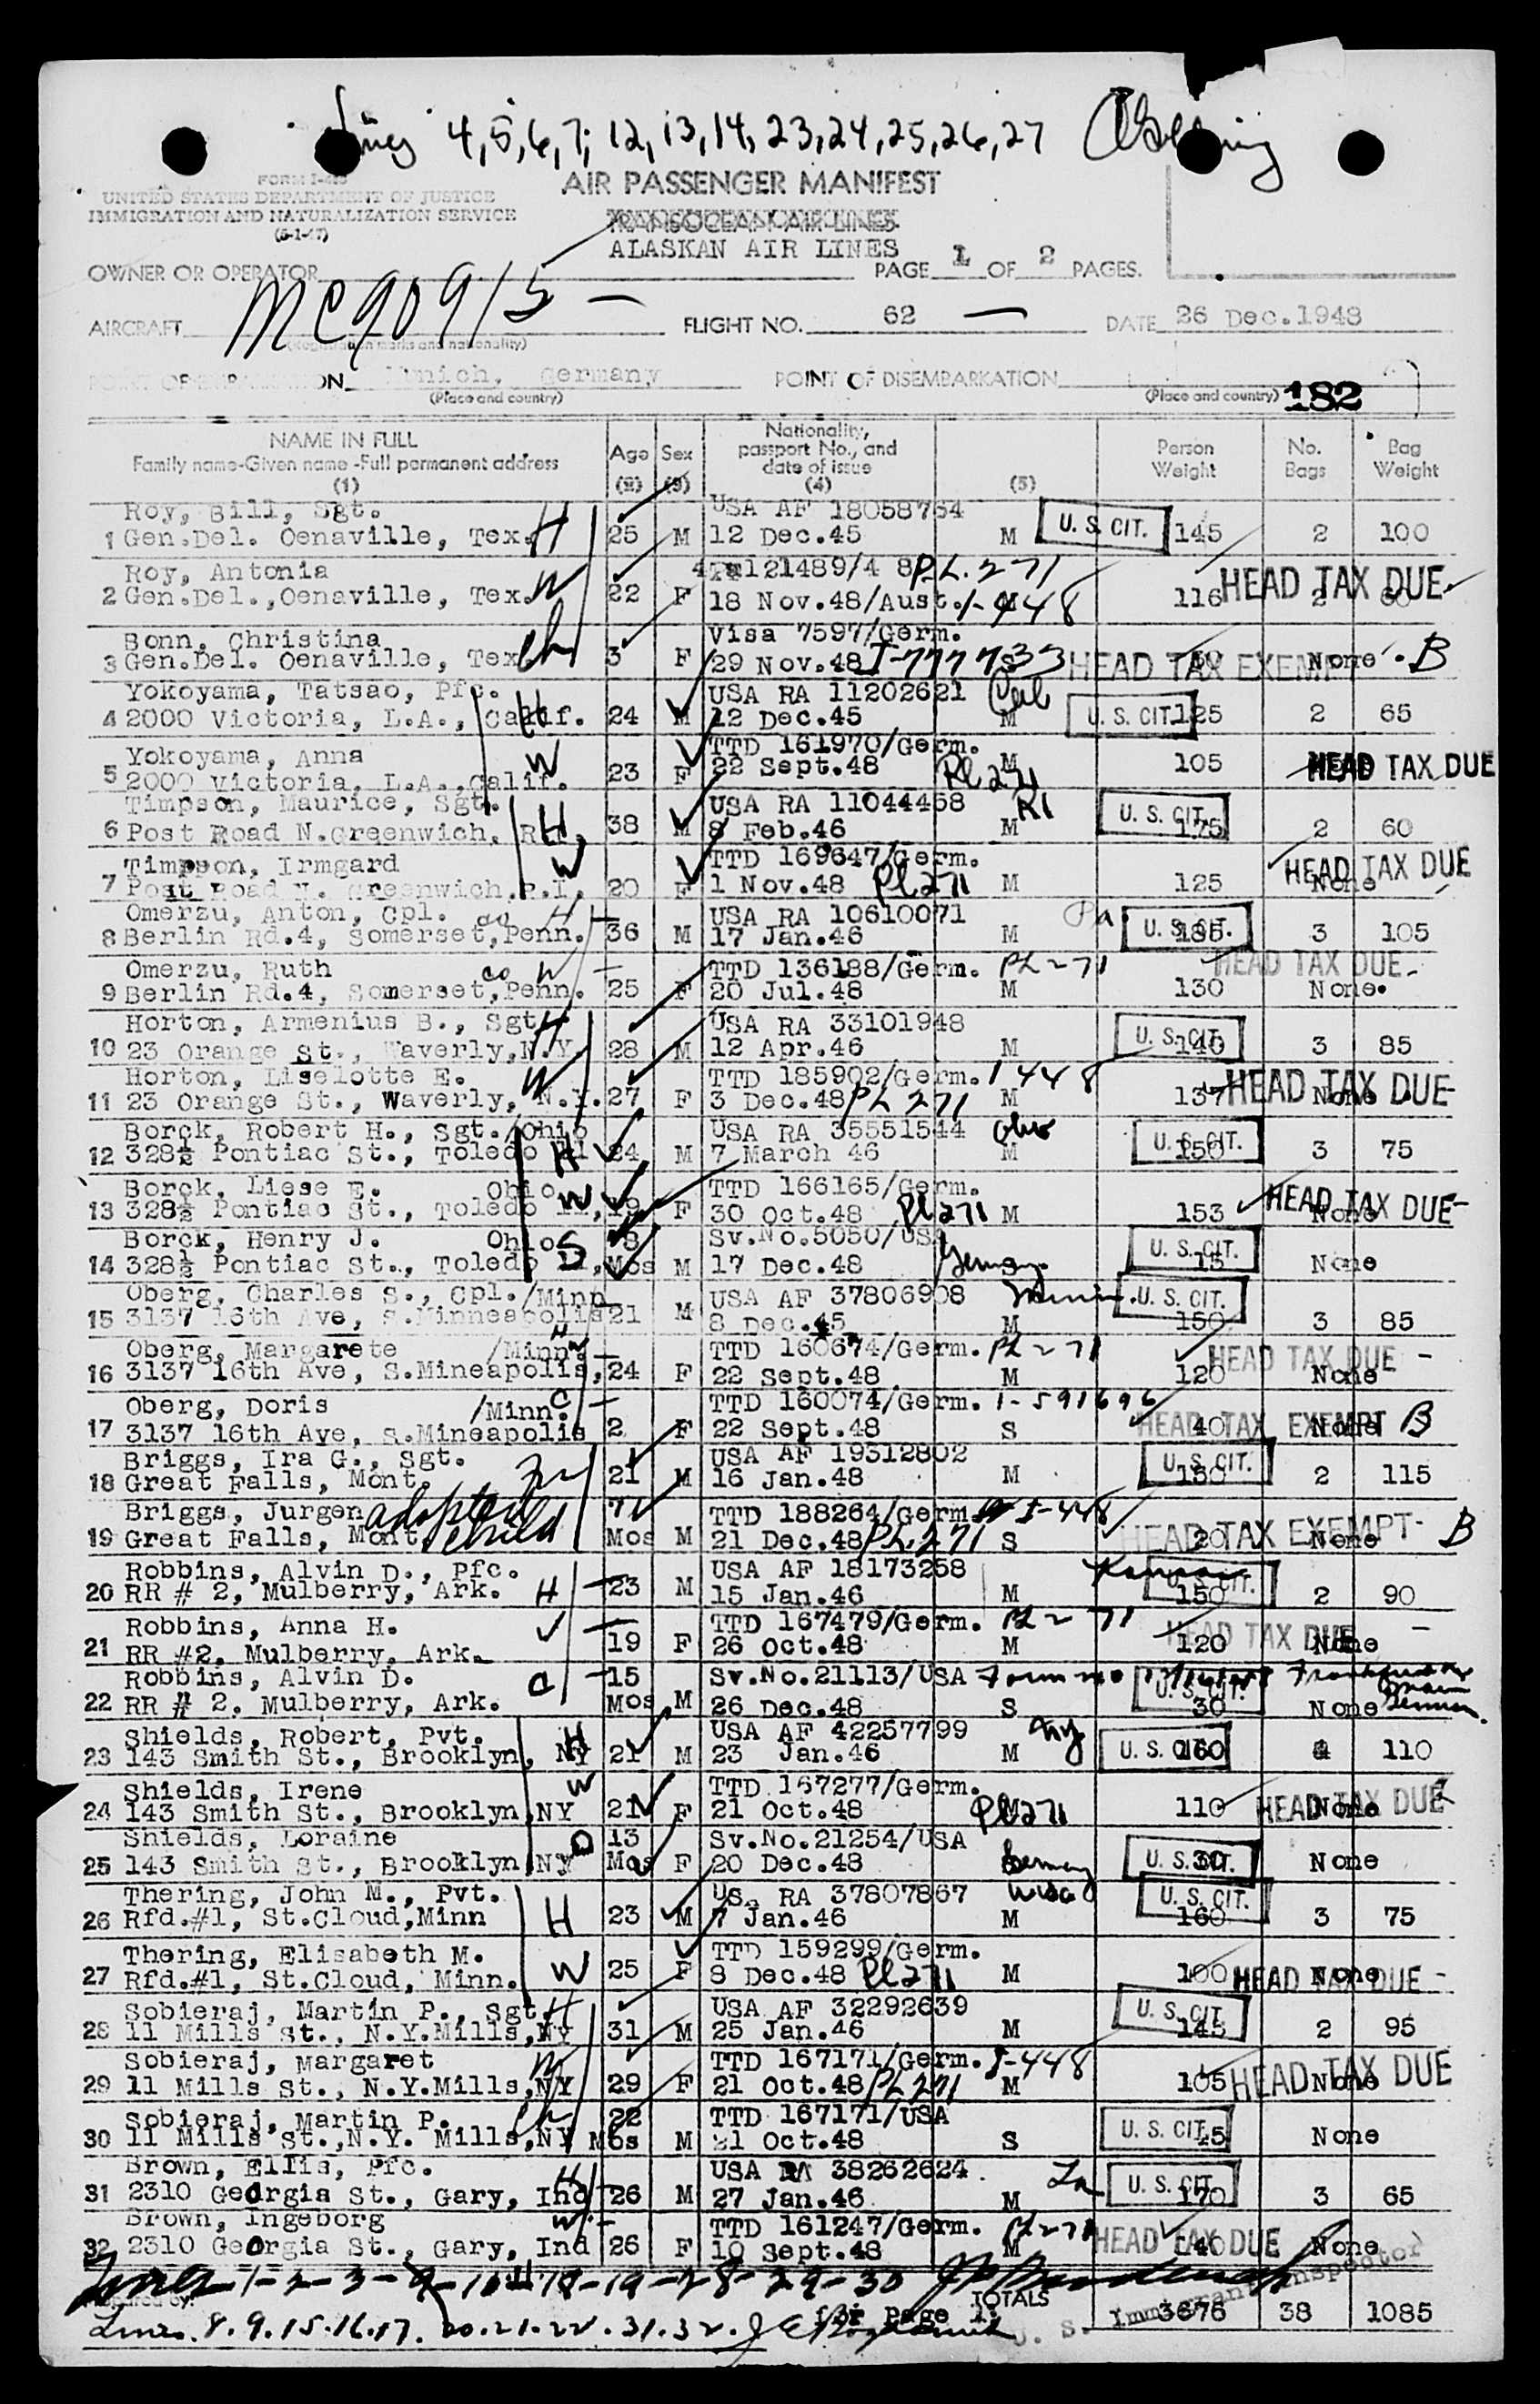 Lines 4,5,6,7; 12,13,14,23,24,25,26,27
FORM I-
UNITED STATES DEPARTMENT OF JUSTICE
IMMIGRATION AND NATURALIZATION SERVICE
AIR PASSENGER MANIFEST
TRANSOCEAN AIR LINES
ALASKAN AIR LINES
OWNER OR OPERATOR
PAGE 1 OF 2 PAGES.
AIRCRAFT
FLIGHT NO. 62
DATE 26 Dec.1948
(Registration marks and nationality)
Munich, Germany
POINT OF DISEMBARKATION
(Place and country)
(Place and country) 182
NAME IN FULL
Family name-Given name-Full permanent address
(1)
Age
(2)
Sex
(3)
Nationality, passport No., and date of issue
(4)
(5)
Person Weight
No. Bags
Bag Weight
Roy, Bill, Sgt. H USA AF 18058764
1 Gen.Del. Oenaville, Tex. 25 M 12 Dec.45 M U. S. CIT. 145 2 100
Roy, Antonia W 121489/4 8 P.L. 271
2 Gen.Del.,Oenaville, Tex. 22 F 18 Nov.48/Aust. I-448 116 HEAD TAX DUE
Bonn, Christina Ch Visa 7597/Germ.
3 Gen.Del. Oenaville, Tex. 3 F 29 Nov.48 I-777733 HEAD TAX EXEMPT None B
Yokoyama, Tatsao, Pfc. H USA RA 11202621 Cal
4 2000 Victoria, L.A., Calif. 24 M 12 Dec.45 M U. S. CIT. 125 2 65
Yokoyama, Anna W TTD 161970/Germ.
5 2000 Victoria, L.A.,Calif. 23 F 22 Sept.48 PL 271 M 105 HEAD TAX DUE
Timpson, Maurice, Sgt. H USA RA 11044458 RI
6 Post Road N.Greenwich, R.I. 38 M 8 Feb.46 M U. S. CIT. 175 2 60
Timpson, Irmgard W TTD 169647/Germ.
7 Post Road N. Greenwich,R.I. 20 F 1 Nov.48 PL 271 M 125 HEAD TAX DUE None
Omerzu, Anton, Cpl. H USA RA 10610071 Pa.
8 Berlin Rd.4, Somerset,Penn. 36 M 17 Jan.46 M U. S. CIT. 185 3 105
Omerzu, Ruth W TTD 136188/Germ. PL 271 HEAD TAX DUE
9 Berlin Rd.4, Somerset,Penn. 25 F 20 Jul.48 M 130 None.
Horton, Armenius B., Sgt. H USA RA 33101948
10 23 Orange St., Waverly,N.Y. 28 M 12 Apr.46 M U. S. CIT. 140 3 85
Horton, Liselotte E. W TTD 185902/Germ. I 448
11 23 Orange St., Waverly, N.Y. 27 F 3 Dec.48 PL 271 M 137 HEAD TAX DUE None
Borck, Robert H., Sgt./Ohio USA RA 35551544 Ohio
12 328½ Pontiac St., Toledo H 24 M 7 March 46 M U. S. CIT. 150 3 75
Borck, Liese E. Ohio W TTD 166165/Germ.
13 328½ Pontiac St., Toledo 19 F 30 Oct.48 PL 271 M 153 HEAD TAX DUE None
Borck, Henry J. Ohio S 8 Sv.No.5050/USA
14 328½ Pontiac St., Toledo Mos M 17 Dec.48 Germany U. S. CIT. 15 None
Oberg, Charles S., Cpl./Minn USA AF 37806908 Minn. U. S. CIT.
15 3137 16th Ave, S.Minneapolis 21 M 8 Dec.45 M 150 3 85
Oberg, Margarete /Minn. W TTD 160674/Germ. PL 271 HEAD TAX DUE
16 3137 16th Ave, S.Mineapolis, 24 F 22 Sept.48 M 120 None
Oberg, Doris /Minn. C TTD 160074/Germ. I-591696 HEAD TAX EXEMPT B
17 3137 16th Ave, S.Mineapolis 2 F 22 Sept.48 S 40 None
Briggs, Ira G., Sgt. USA AF 19312802
18 Great Falls, Mont. 21 M 16 Jan.48 M U. S. CIT. 150 2 115
Briggs, Jurgen adopted child 7 TTD 188264/Germ. I-448
19 Great Falls, Mont. Mos M 21 Dec.48 PL 271 S 20 HEAD TAX EXEMPT None B
Robbins, Alvin D., Pfc. USA AF 18173258
20 RR # 2, Mulberry, Ark. H 23 M 15 Jan.46 M U. S. CIT. 150 2 90
Robbins, Anna H. TTD 167479/Germ. PL 271 HEAD TAX DUE
21 RR #2. Mulberry, Ark. 19 F 26 Oct.48 M 120 None
Robbins, Alvin D. C 15 Sv.No.21113/USA
22 RR # 2. Mulberry, Ark. Mos M 26 Dec.48 S U. S. CIT. 30 None
Shields, Robert, Pvt. H USA AF 42257799 NY
23 143 Smith St., Brooklyn, NY 21 M 23 Jan.46 M U. S. CIT. 160 4 110
Shields, Irene W TTD 167277/Germ.
24 143 Smith St., Brooklyn,NY 21 F 21 Oct.48 PL 271 110 HEAD TAX DUE None
Shields, Loraine D 13 Sv.No.21254/USA
25 143 Smith St., Brooklyn,NY Mos F 20 Dec.48 Germany U. S. CIT. 30 None
Thering, John M., Pvt. H USA RA 37807867
26 Rfd.#1, St.Cloud,Minn 23 M 7 Jan.46 M U. S. CIT. 160 3 75
Thering, Elisabeth M. W TTD 159299/Germ.
27 Rfd.#1, St.Cloud, Minn. 25 F 8 Dec.48 PL 271 M 100 HEAD TAX DUE None
Sobieraj, Martin P., Sgt. H USA AF 32292639
28 11 Mills St., N.Y.Mills,NY 31 M 25 Jan.46 M U. S. CIT. 145 2 95
Sobieraj, Margaret W TTD 167171/Germ. I-448
29 11 Mills St., N.Y.Mills,NY 29 F 21 Oct.48 PL 271 M 105 HEAD TAX DUE None
Sobieraj, Martin P. Ch 22 TTD 167171/USA
30 11 Mills St.,N.Y. Mills,NY Mos M 21 Oct.48 S U. S. CIT. 45 None
Brown, Ellis, Pfc. H USA RA 38262624
31 2310 Georgia St., Gary, Ind 26 M 27 Jan.46 M U. S. CIT. 170 3 65
Brown, Ingeborg W TTD 161247/Germ. PL 271
32 2310 Georgia St., Gary, Ind 26 F 10 Sept.48 M 140 HEAD TAX DUE None
Lines 1-2-3-9-10-11-18-19-28-29-30
Prepared by
TOTALS
for page 1. 3676 38 1085
Lines. 8.9.15.16.17. 20.21.22.31.32.
U. S. Immigrant Inspector